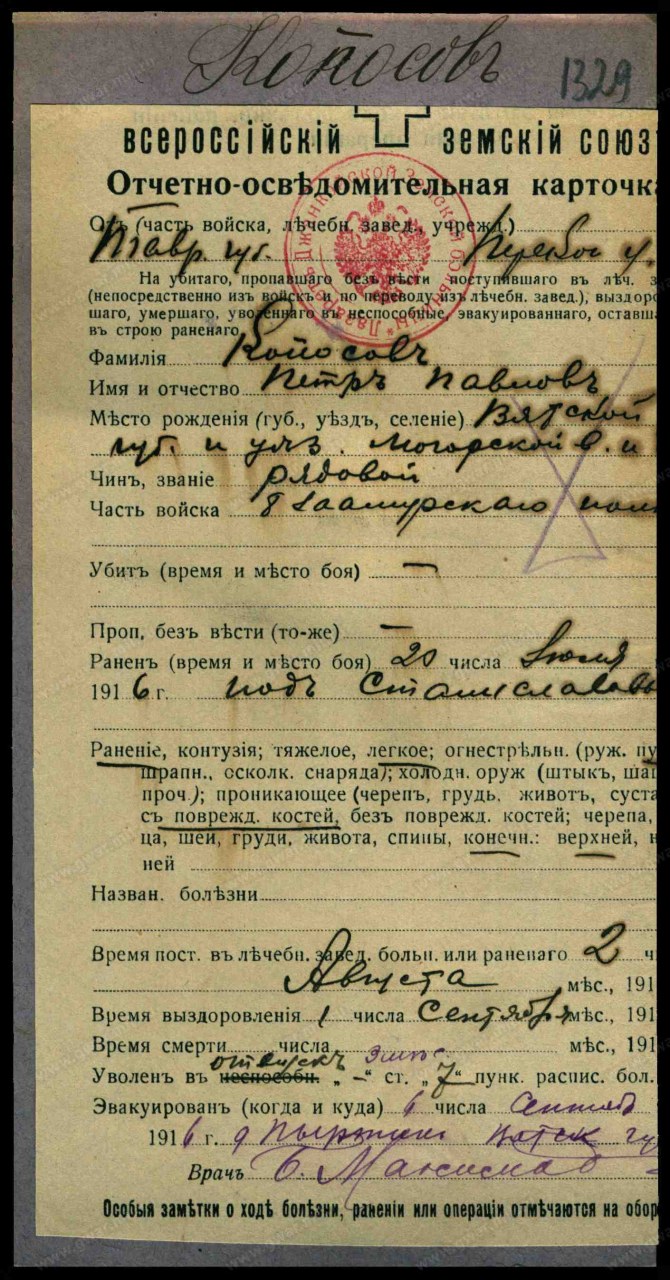 Копосовъ 1329
ВСЕРОССІЙСКІЙ ЗЕМСКІЙ СОЮЗ
Отчетно-освѣдомительная карточка
Отъ (часть войска, лѣчебн. завед., учрежд.)
Тавр. губ.
На убитаго, пропавшаго безъ вѣсти поступившаго въ леч. з
(непосредственно изъ войскъ и по переводу изъ лѣчебн. завед.), выздор
шаго, умершаго, уволеннаго въ неспособные, эвакуированнаго, оставша
въ строю раненаго
Фамилія Копосовъ
Имя и отчество Петръ Павловъ
Мѣсто рожденія (губ., уѣздъ, селеніе) Вятской
губ. и уѣз. в. и
Чинъ, званіе рядовой
Часть войска 8 Заамурскаго пол
Убитъ (время и мѣсто боя) —
Проп, безъ вѣсти (то-же) —
Раненъ (время и мѣсто боя) 20 числа Іюля
1916 г. подъ Станиславовъ
Раненіе, контузія; тяжелое, легкое; огнестрѣльн. (руж. пу
шрапн., осколк. снаряда); холодн. оруж (штыкъ, шаш
проч.); проникающее (черепъ, грудь, животъ, суста
съ поврежд. костей, безъ поврежд. костей; черепа,
ца, шеи, груди, живота, спины, конечн.: верхней, н
ней
Назван. болѣзни
Время пост. въ лѣчебн. завед. больн. или раненаго 2 ч
Августа мѣс., 191
Время выздоровленія 1 числа Сентября мѣс., 191
Время смерти числа мѣс., 191
отпускъ
Уволенъ въ неспособн. „ – “ ст. „ 7 “ пунк. распис. бол.
Эвакуированъ (когда и куда) 6 числа Сентяб
1916 г.
Врачъ Б.
Особыя замѣтки о ходѣ болѣзни, раненіи или операціи отмѣчаются на обор